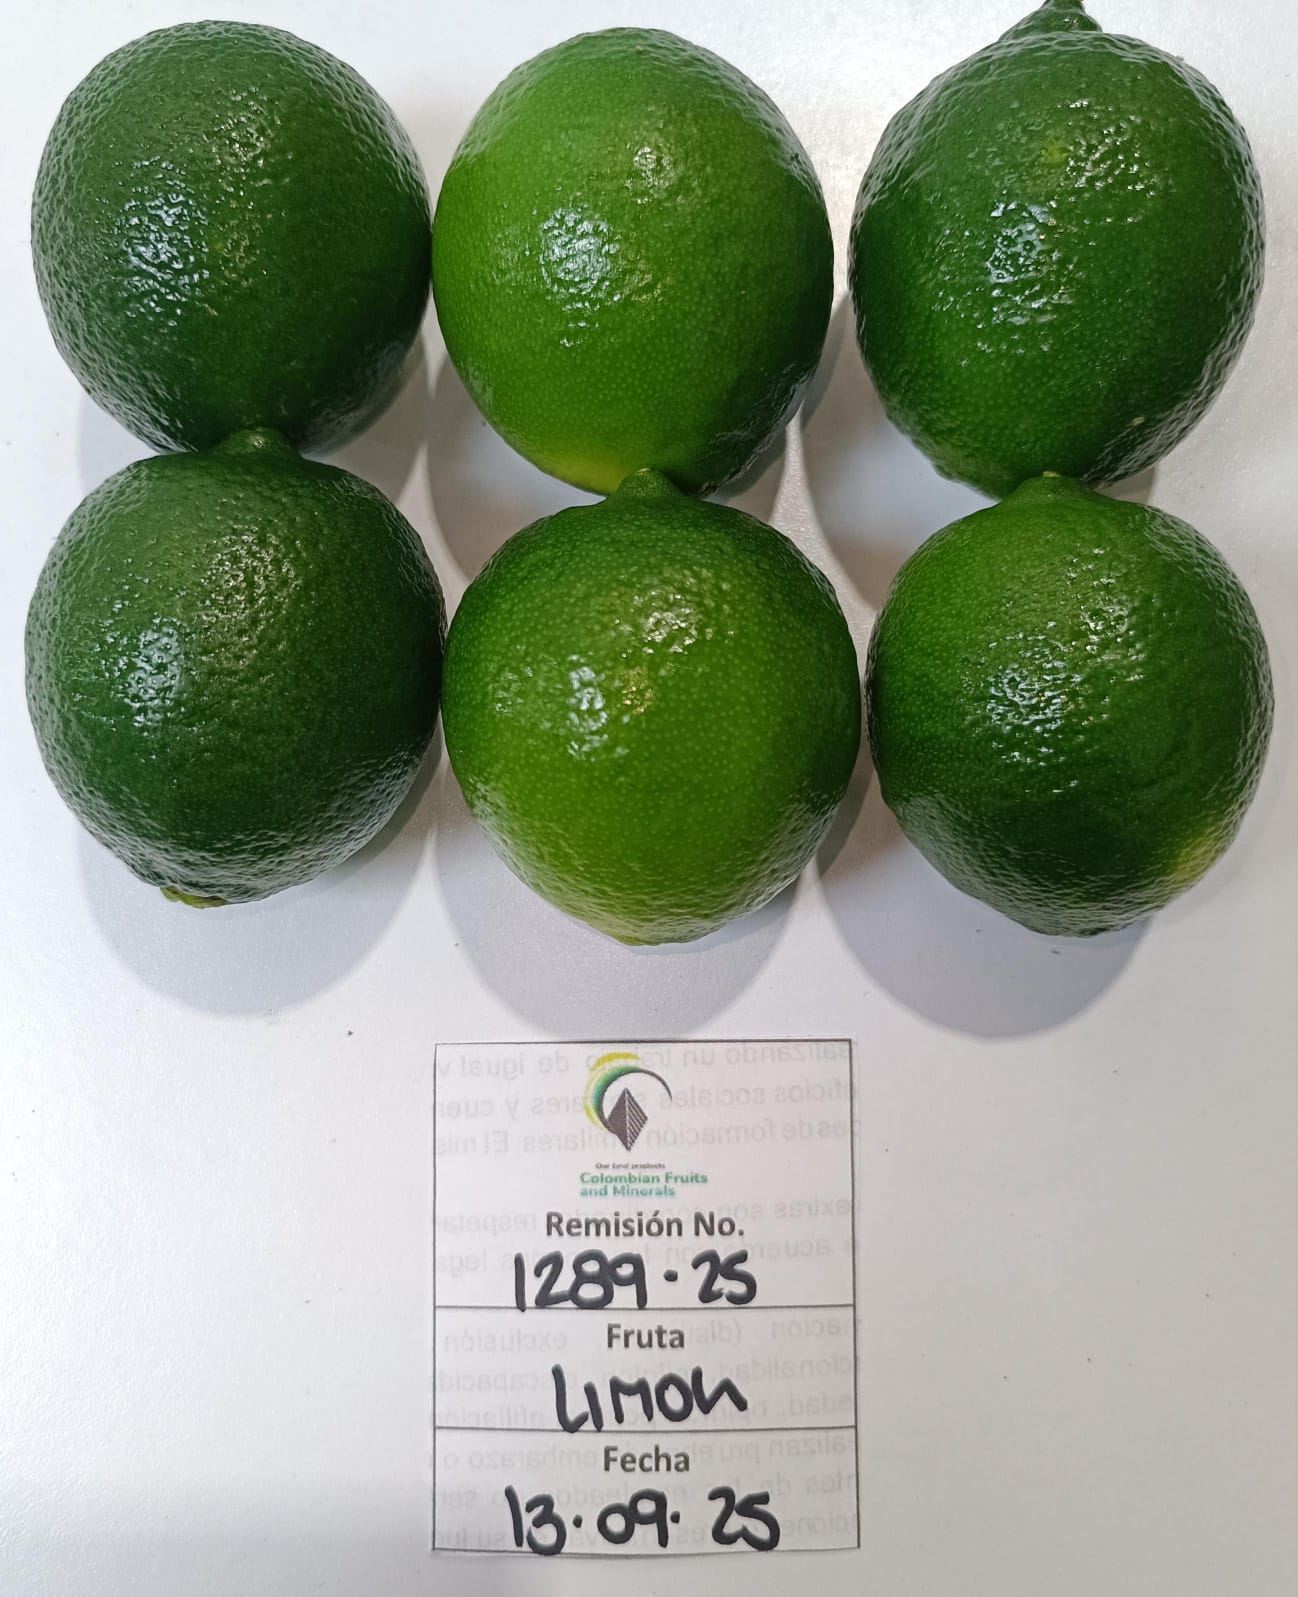 Our land products
Colombian Fruits
and Minerals
Remisión No.
1289·25
Fruta
LIMON
Fecha
13·09·25